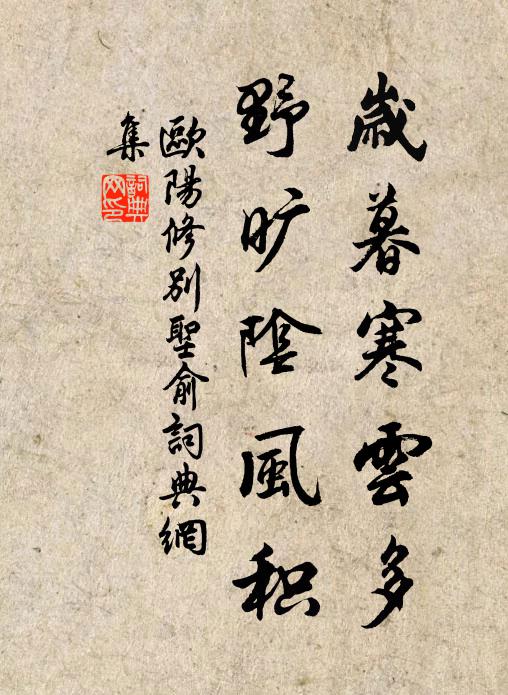 歲暮寒雲多
野旷陰風积
歐陽修別聖俞詞典網
集
詞典
网印